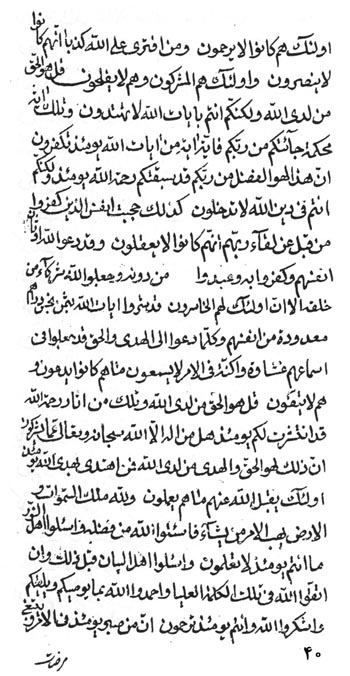 اولئك هم كانوا لا يرجعون ومن افترى على الله كذبا انهم كانوا
لا ينصرون واولئك هم المشركون وهم لا يفلحون قل هو الحق
من لدى الله ولكنكم انتم بايات الله لا تهتدون وتلك اية
محكمة جائتكم من ربكم فاية اية من ايات الله يومئذ تكفرون
ان هذا لهو الفضل من ربكم قد سبقتكم رحمة الله يومئذ ولكنكم
انتم فى دين الله لا تدخلون كذلك حجبت انفس الذين كفروا
من قبل عن لقآء ربهم انهم كانوا لا يعقلون وقد دعوا الله
انفسهم وكفروا به وعبدوا من دونه وجعلوا الله شركآء من
خلقه الا ان اولئك لهم الخاسرون قد اشتروا ايات الله بثمن بخس دراهم
معدودة من انفسهم وكلما دعوا الى الهدى والحق قد جعلوا فى
اسماعهم غشاوة واكنة فى الامر لا يسمعون ما هم كانوا يدعون و
هم لا يتقون قل هو الحق من لدى الله وتلك من اثار رحمة الله
قد انتشرت لكم يومئذ هل من اله الا الله سبحانه وتعالى عما يشركون
ان ذلك لهو الحق والهدى من لدى الله فمن اهتدى بهدى الله يومئذ
اولئك يقبل الله عنهم ما هم يعملون ولله ملك السموات و
الارض يهب الامر من يشآء فاسئلوا الله من فضله فاسئلوا اهل الذكر
ما انتم يومئذ لا تعلمون واسئلوا اهل البيان قبل ذلك وان
اتقوا الله فى تلك الكلمة العليا واحمدوا الله بما يوميكم ويلهمكم
واشكروا الله وانتم يومئذ ترجعون ان من صبر يومئذ فى الامر
۴۰